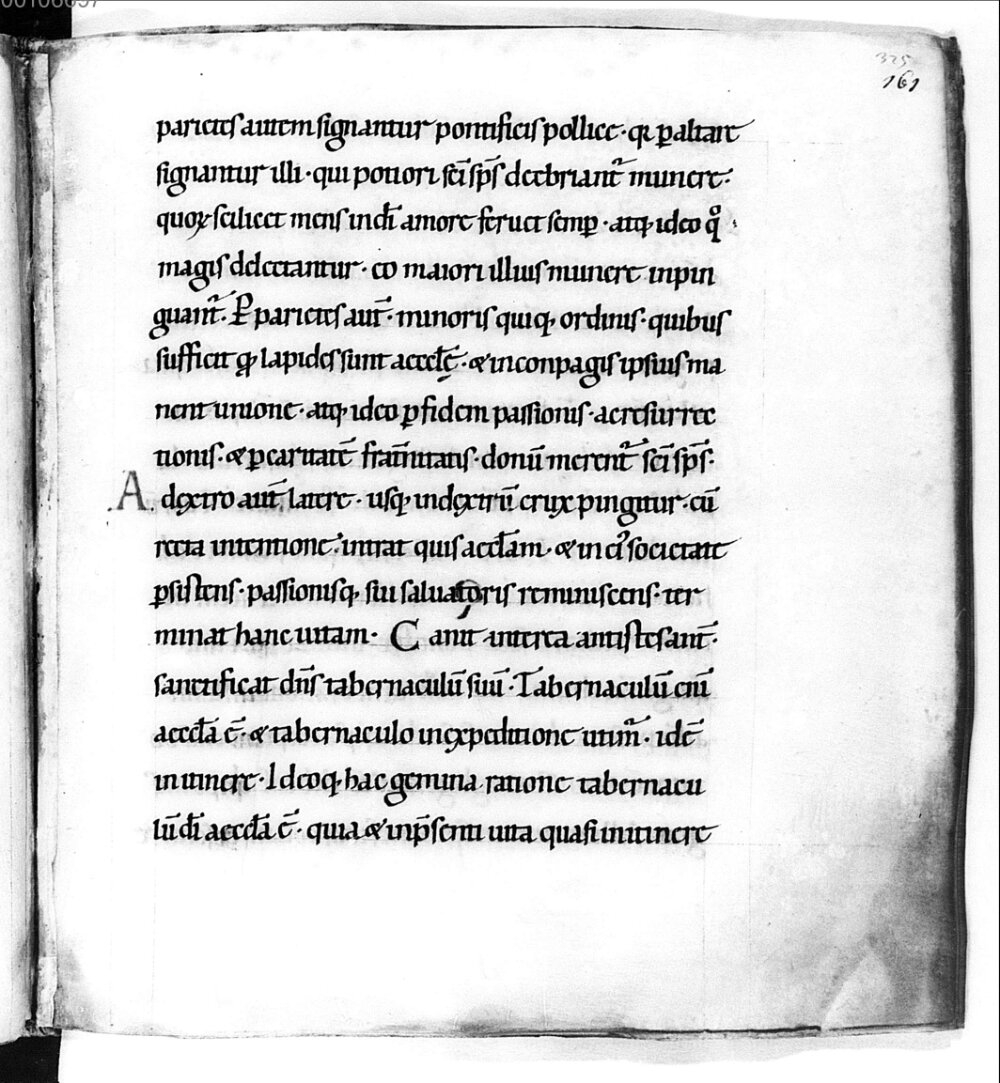 00106097
325
161
parietes autem signantur pontificis pollice· q̄ꝛ ꝑ altare
signantur illi· qui potiori sc̄i sp̄s deebriant᷑ munere·
quoꝝ scilicet mens in dī amore feruet semꝑ· atq; ideo q°
magis delectantur· eo maiori illius munere inpin
guant᷑. Ꝑ parietes aut̄· minoris quiq; ordinis· quibus
sufficit ꝙ lapides sunt aeccłę· & in conpagis ipsius ma
nent unione· atq; ideo ꝑ fidem passionis· ac resurrec
tionis· & ꝑ caritatē frat̄nitatis· donū merent᷑ sc̄i sp̄s·
A dextro aut̄ latere· usq; in dextrū crux pingitur· cū
recta intentione· intrat quis aeccłam· & in ei᷒ societate
ꝑsistens· passionisq; sui saluatoris reminiscens· ter
minat hanc uitam· Canit interea antistes ant̄·
sanctificat dn̄s tabernaculū suū· Tabernaculū eniū
aeccłā ē· & tabernaculo in expeditione utim᷑· idē
in itinere· Ideoq; hac gemina ratione tabernacu
lū dī aeccłā ē· quia & in p̄senti uita quasi in itinere